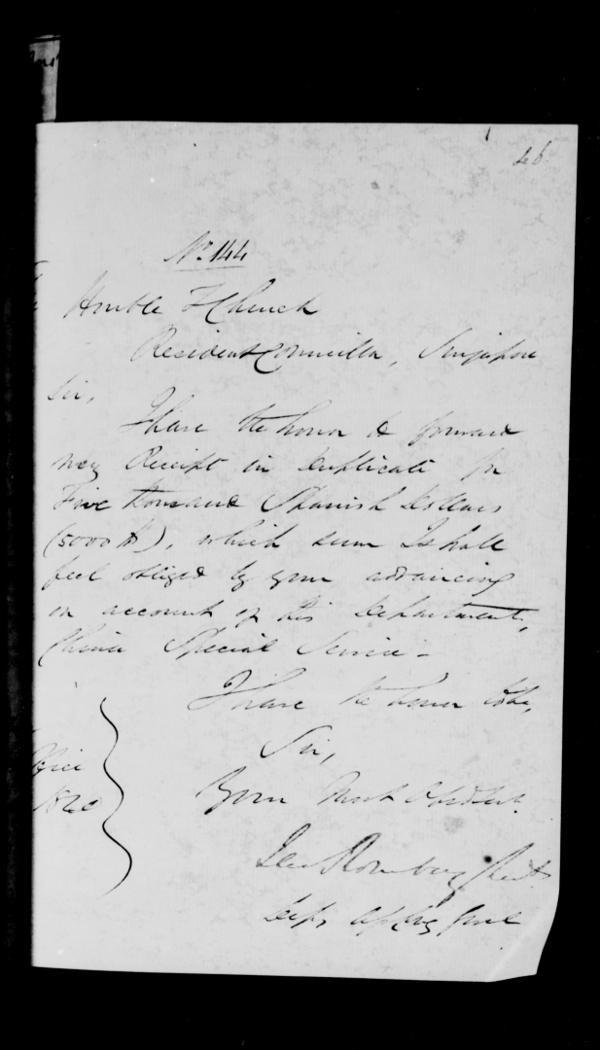 46
No. 144
Honble T Church
Resident Councillor, Singapore
Sir,
I have the honor to forward
my Receipt in Duplicate for
Five thousand Spanish Dollars
(5000 $), which sum I shall
feel obliged by your advancing
on account of this Department,
China Special Service -
I have the honor to be,
Sir,
Your Most Obedient
Capt
Depy